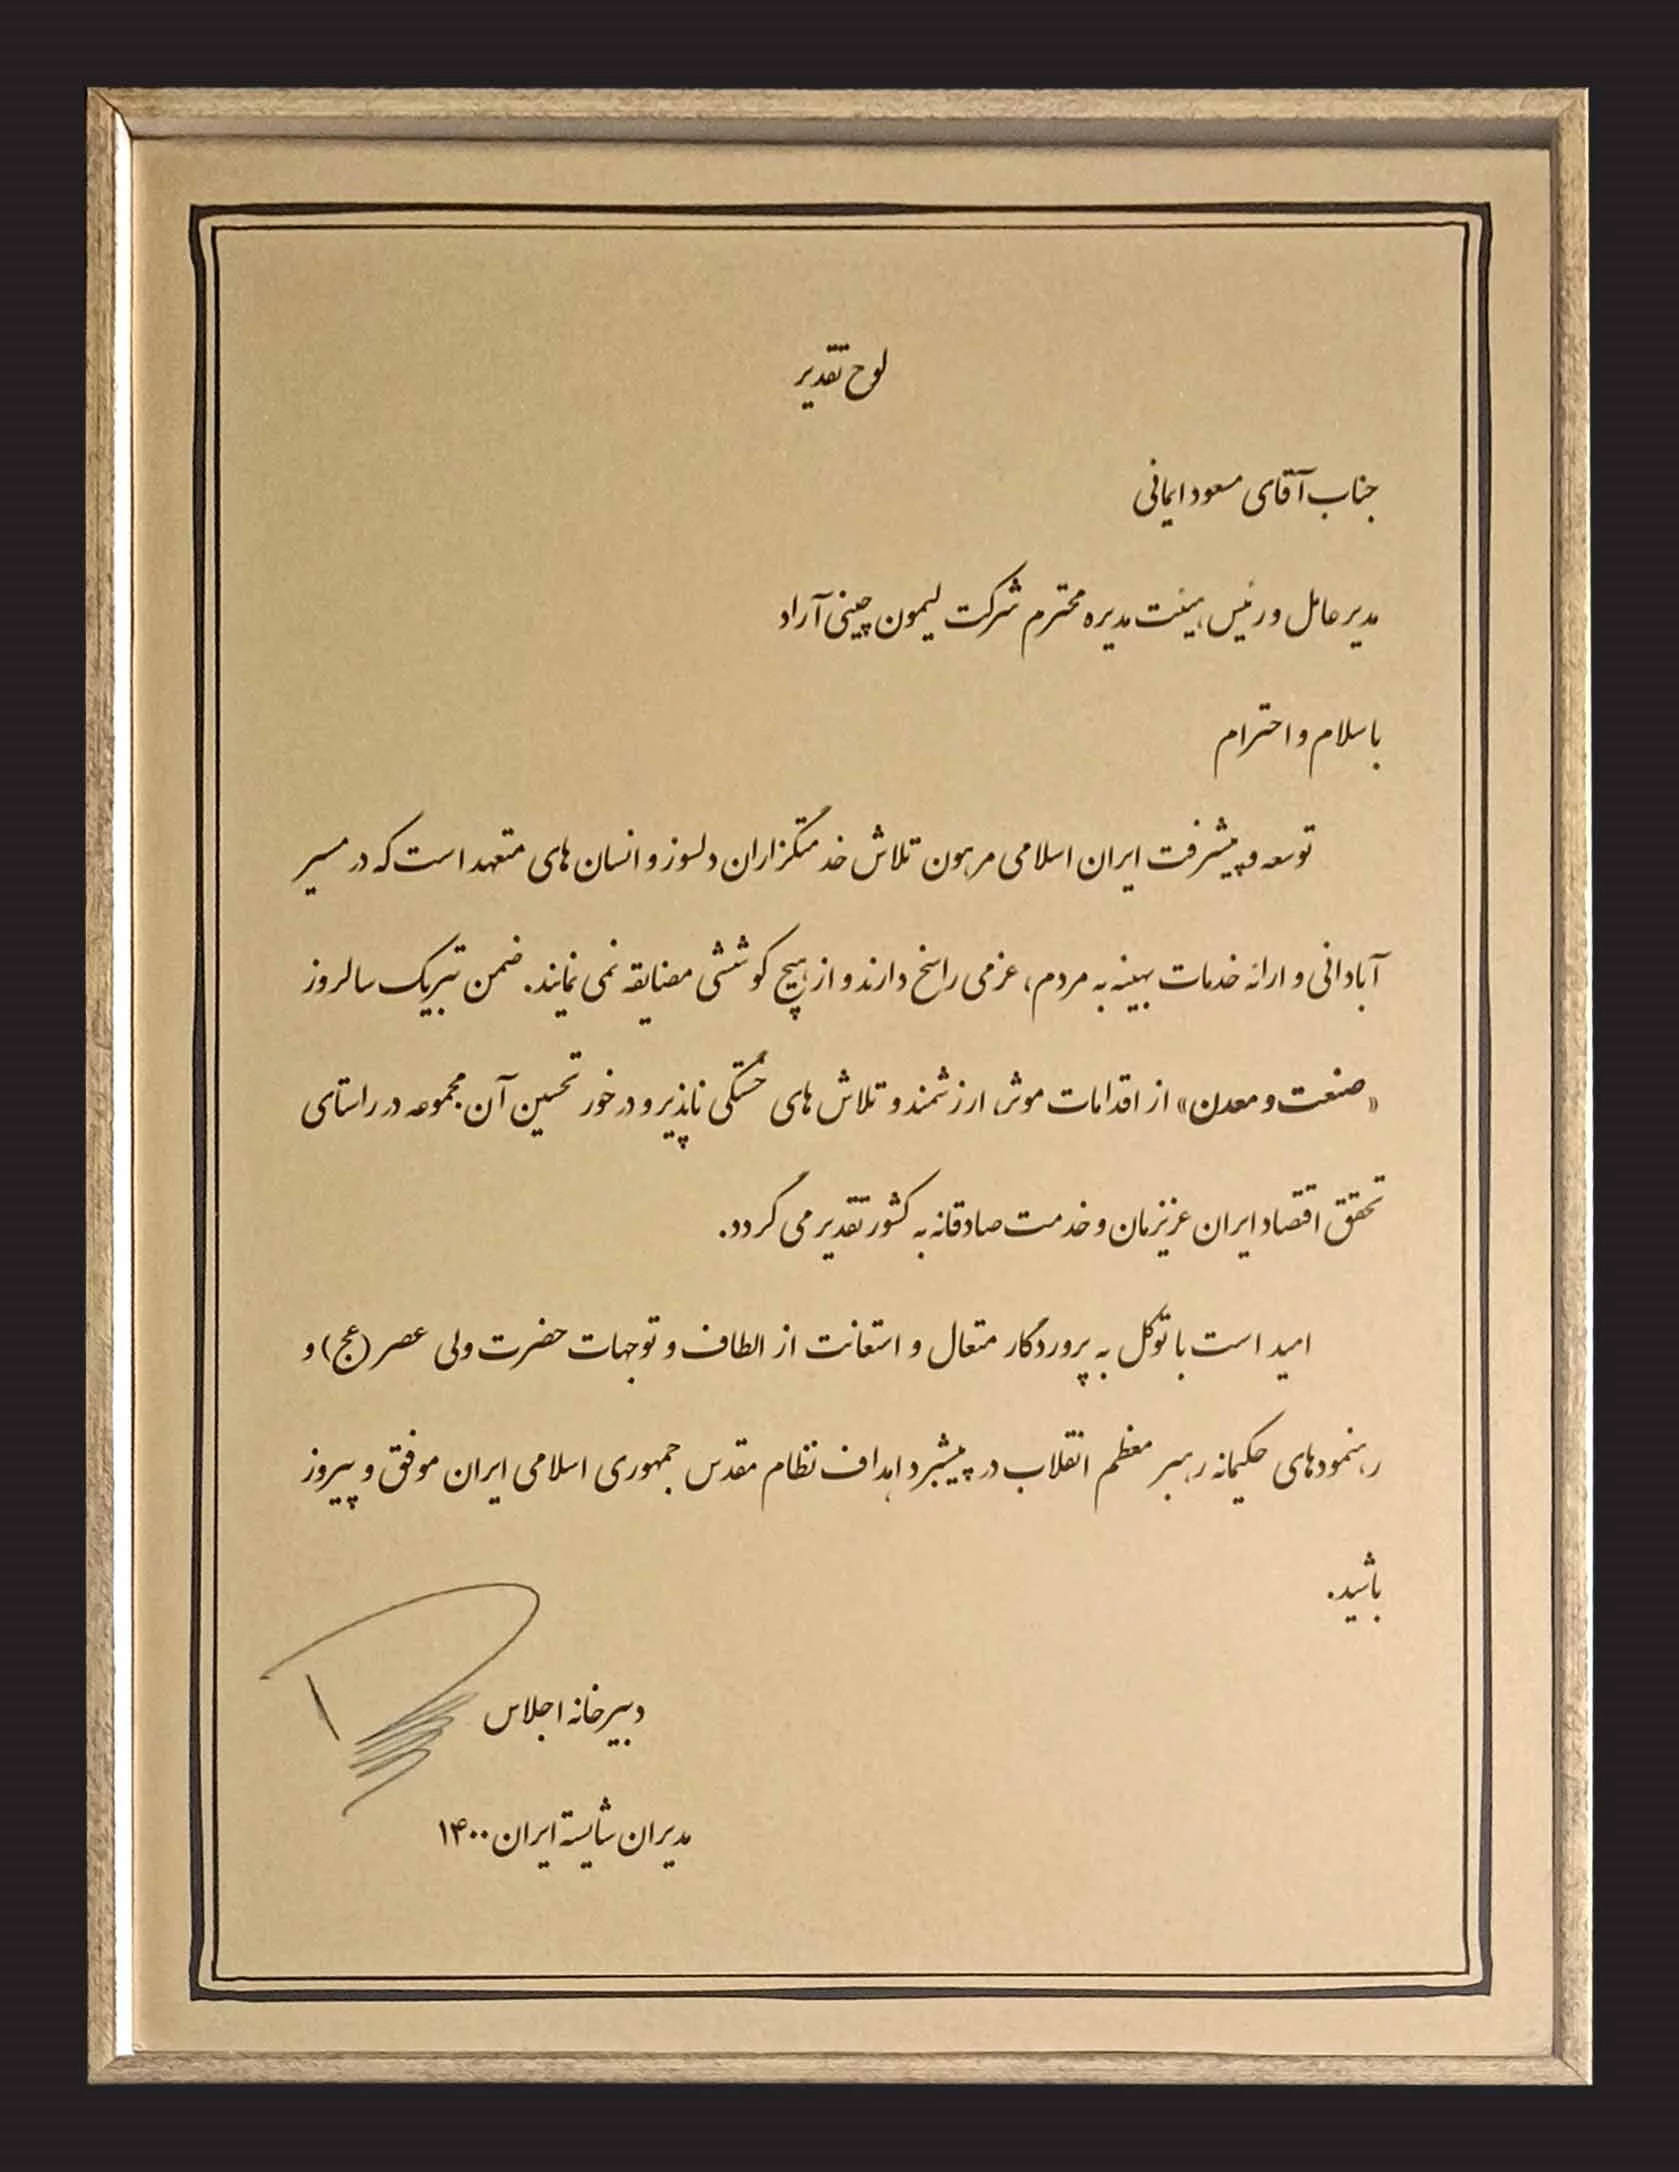 لوح تقدیر
جناب آقای مسعود ایمانی
مدیر عامل و رئیس هیئت مدیره محترم شرکت لیمون چینی آراد
با سلام و احترام
توسعه و پیشرفت ایران اسلامی مرهون تلاش خدمتگزاران دلسوز و انسان های متعهد است که در مسیر
آبادانی و ارائه خدمات بهینه به مردم، عزمی راسخ دارند و از هیچ کوششی مضایقه نمی نمایند. ضمن تبریک سالروز
«صنعت و معدن» از اقدامات موثر، ارزشمند و تلاش های خستگی ناپذیر و در خور تحسین آن مجموعه در راستای
تحقق اقتصاد ایران عزیزمان و خدمت صادقانه به کشور تقدیر می گردد.
امید است با توکل به پروردگار متعال و استعانت از الطاف و توجهات حضرت ولی عصر (عج) و
رهنمودهای حکیمانه رهبر معظم انقلاب در پیشبرد اهداف نظام مقدس جمهوری اسلامی ایران موفق و پیروز
باشید.
دبیرخانه اجلاس
مدیران شایسته ایران ۱۴۰۰